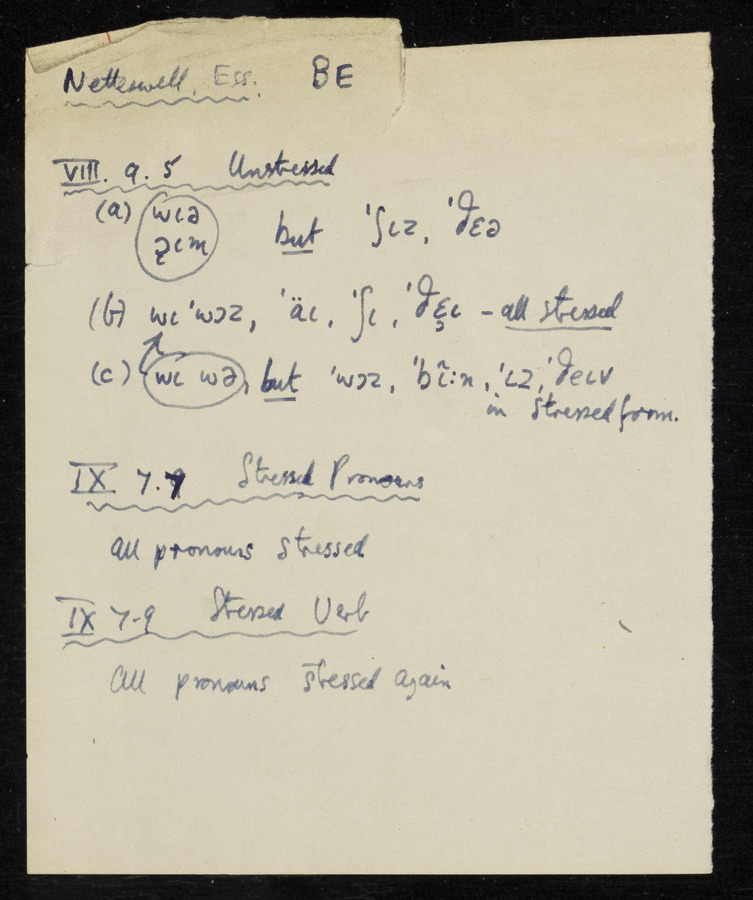 Netteswell, Ess. BE
VIII. 9. 5 Unstressed
(a) wɩə
z̨ɩm but 'ʃɩz, 'ðɛə
(b) wɩ 'wɔz, 'äɩ, 'ʃɩ, 'ðɛ̨ɩ - all stressed
(c) wɩ wə, but 'wɔz, 'bĩ:n, 'ɩz, 'ðeɩv
in stressed form.
IX 7.9 Stressed Pronouns
all pronouns stressed
IX 7-9 Stressed Verb
all pronouns stressed again